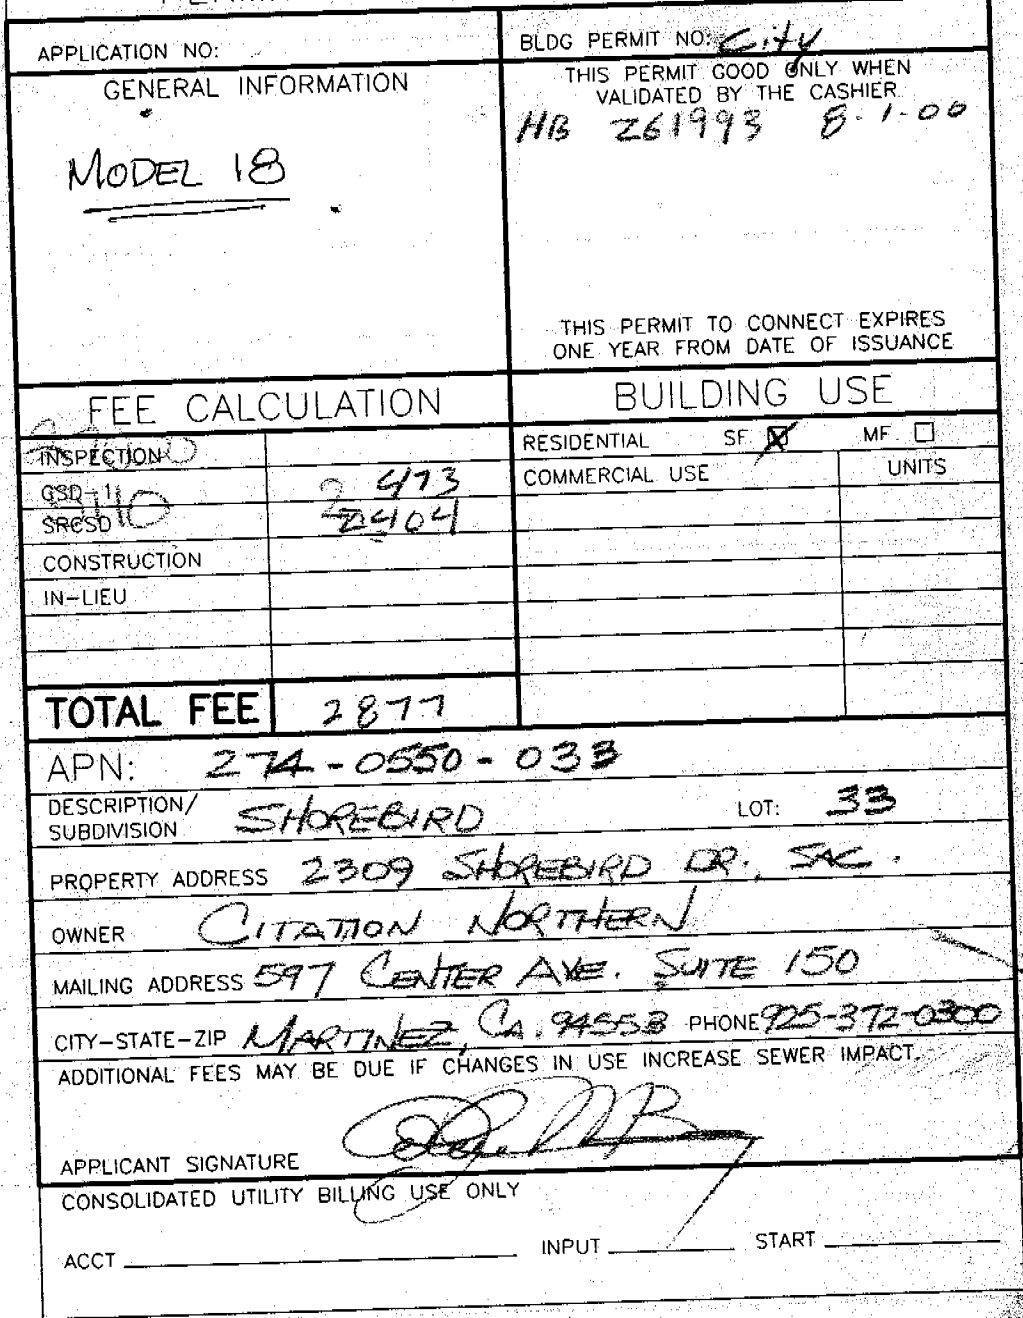 APPLICATION NO:
BLDG PERMIT NO: City
GENERAL INFORMATION
MODEL 18
THIS PERMIT GOOD ONLY WHEN
VALIDATED BY THE CASHIER
HB 261993 8-1-00
THIS PERMIT TO CONNECT EXPIRES
ONE YEAR FROM DATE OF ISSUANCE
FEE CALCULATION
INSPECTION
CSD-1 473
SRCSD 2404
CONSTRUCTION
IN-LIEU
TOTAL FEE 2877
BUILDING USE
RESIDENTIAL SF. MF.
COMMERCIAL USE UNITS
APN: 274-0550-033
DESCRIPTION/
SUBDIVISION SHOREBIRD LOT: 33
PROPERTY ADDRESS 2309 SHOREBIRD DR, SAC.
OWNER CITATION NORTHERN
MAILING ADDRESS 597 CENTER AVE. SUITE 150
CITY-STATE-ZIP MARTINEZ, CA. 94553 PHONE 925-372-0300
ADDITIONAL FEES MAY BE DUE IF CHANGES IN USE INCREASE SEWER IMPACT.
APPLICANT SIGNATURE
CONSOLIDATED UTILITY BILLING USE ONLY
ACCT INPUT START